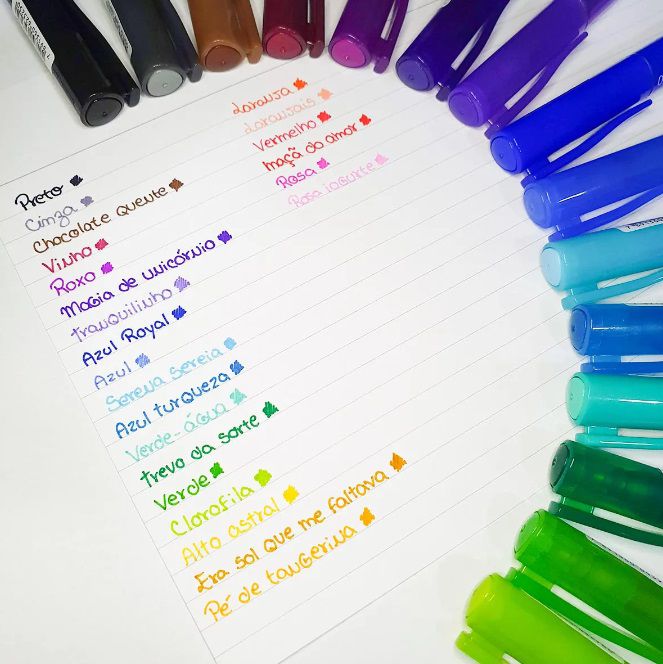 Preto
Cinza
Chocolate quente
Vinho
Roxo
Magia de unicórnio
Tranquilinho
Azul Royal
Azul
Serena sereia
Azul turqueza
Verde-água
Trevo da sorte
Verde
Clorofila
Alto astral
Era sol que me faltava
Pé de tangerina
Laranja
Laranjais
Vermelho
Maçã do amor
Rosa
Rosa iogurte